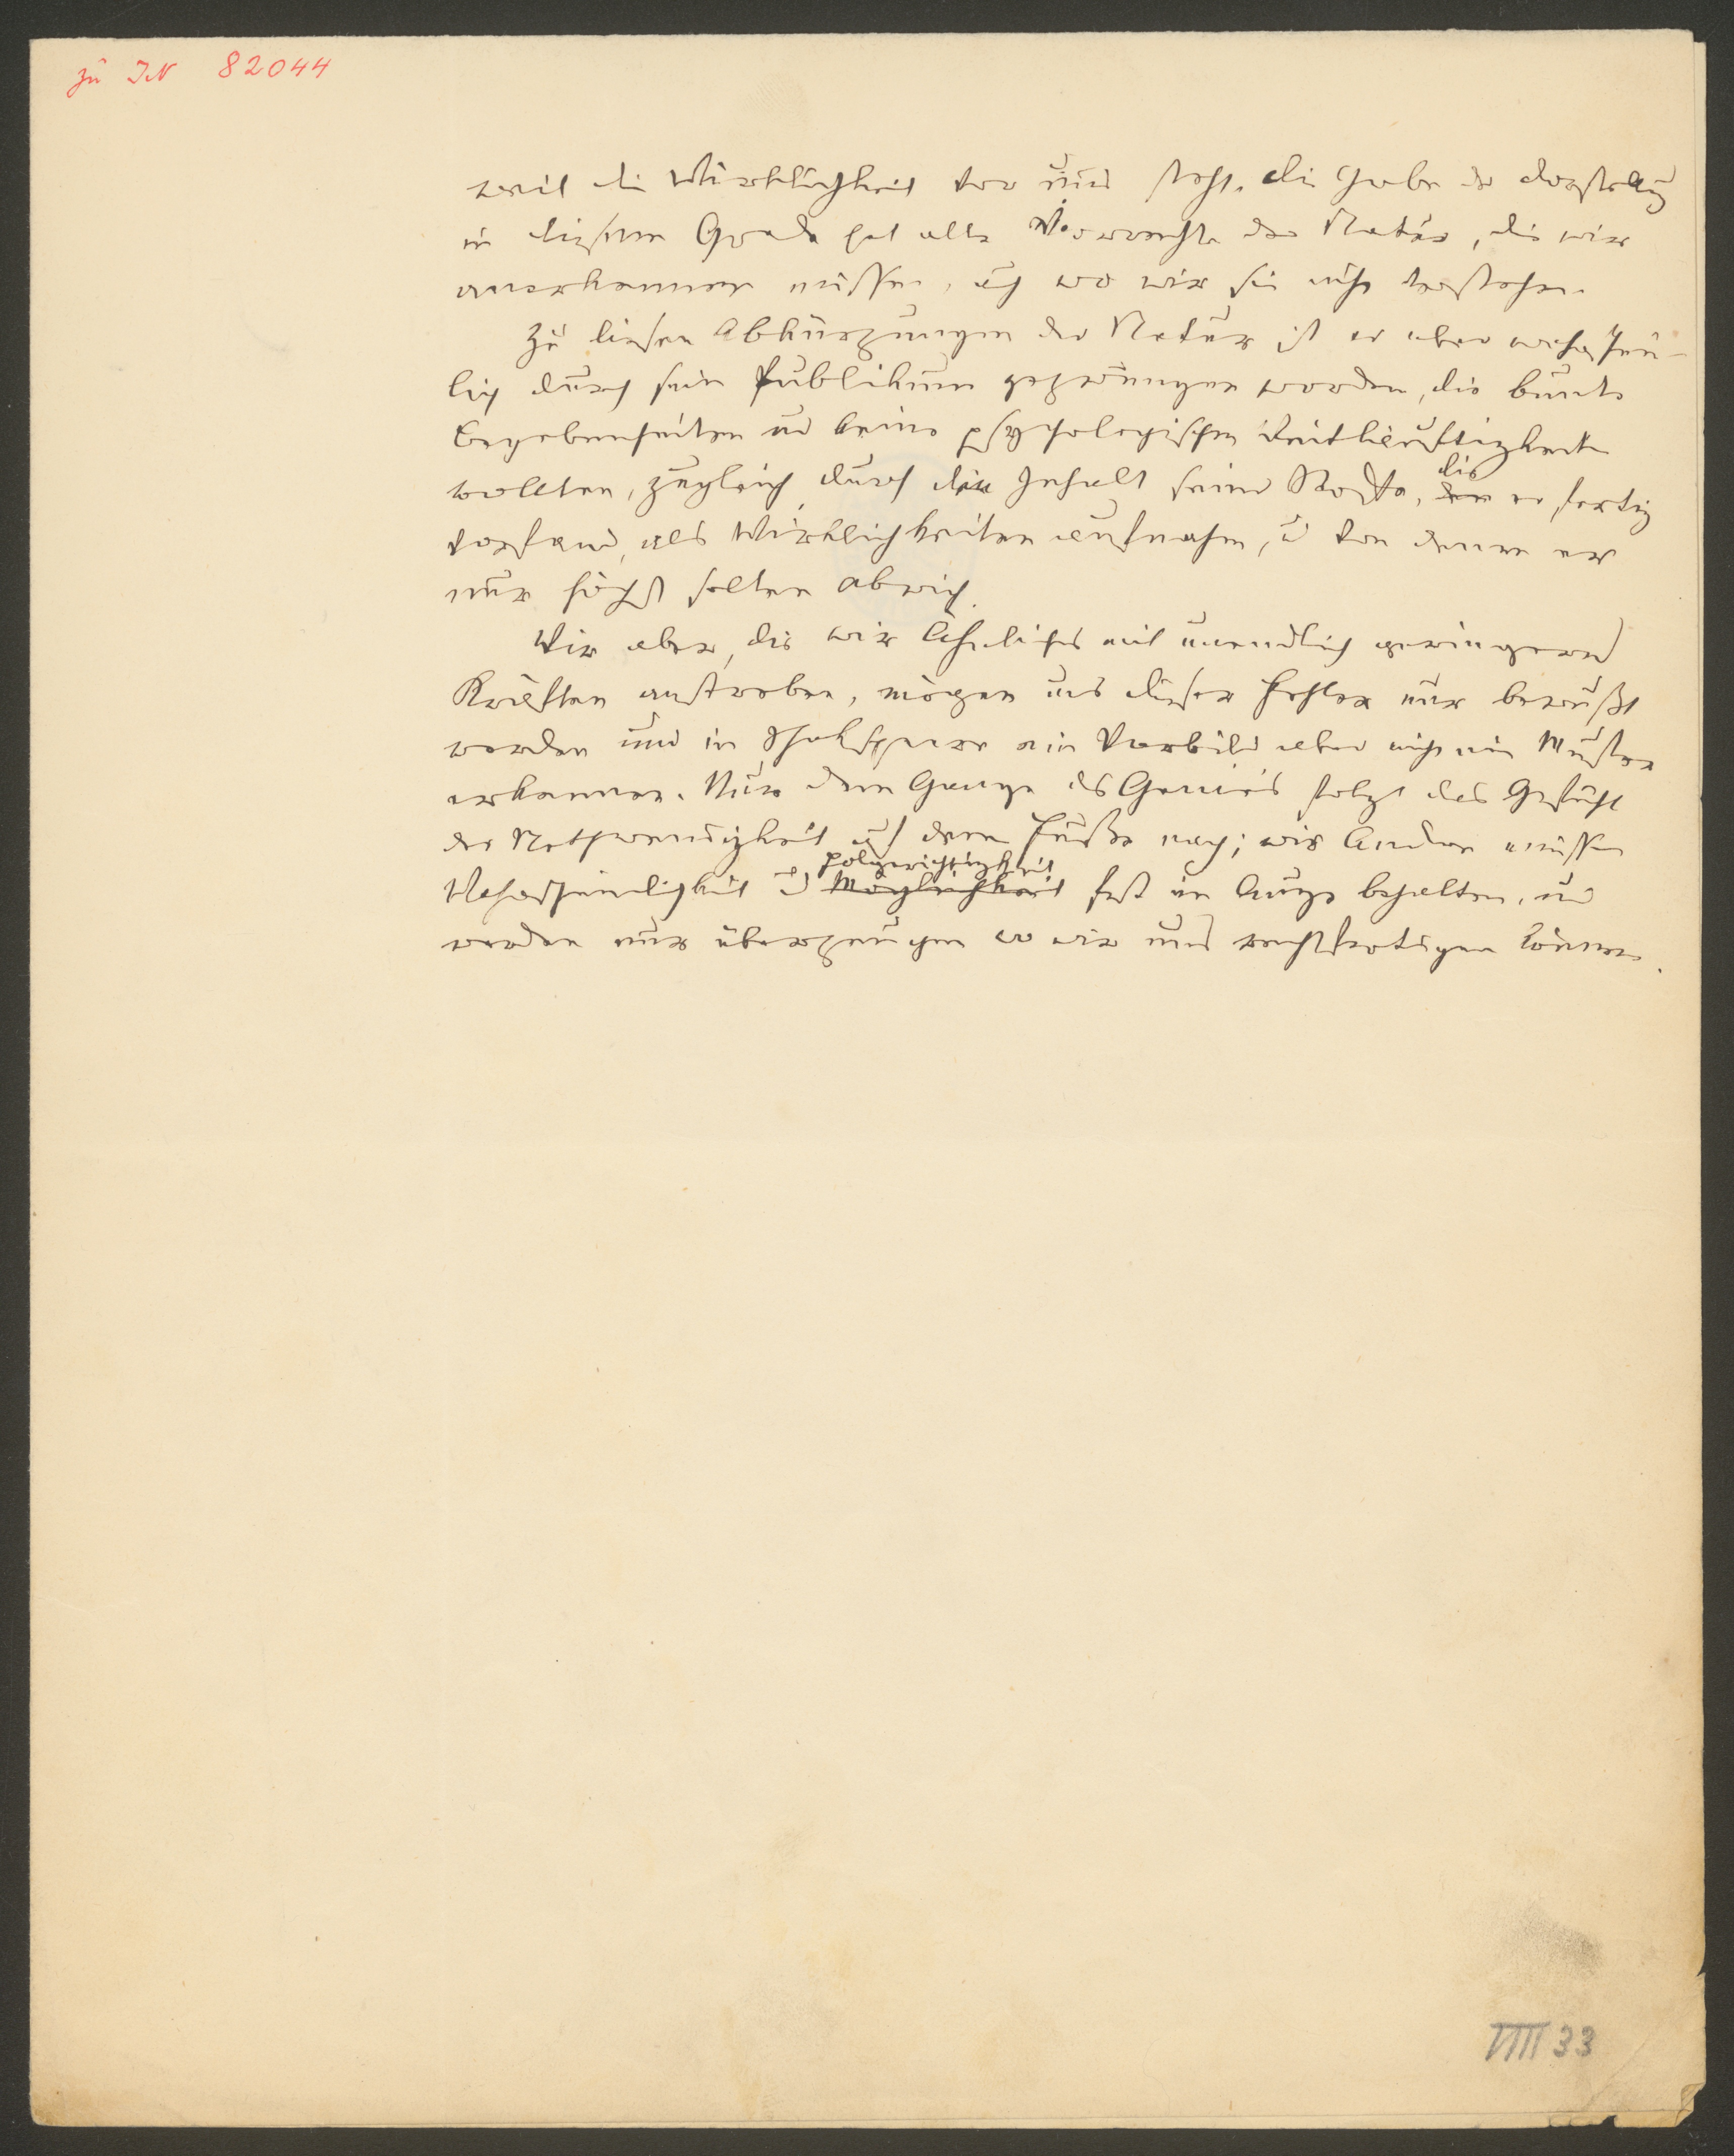 zu IN 82044
weil die Wirklichkeit vor uns steht. Die Gabe der Darstellung
in diesem Grade hat alle Vorrechte der Natur, die wir
anerkennen müssen, auch wo wir sie nicht verstehen.
Zu diesen Abkürzungen der Natur ist er aber wahrschein-
lich durch sein Publikum gezwungen worden, die bunte
Begebenheiten und keine psychologischen Weitläuftigkeiten
wollten, zugleich durch den Inhalt seiner Stoffe, die er fertig
vorfand, als Wirklichkeiten aufnahm, u von denen er
nur höchst selten abwich.
Wir aber, die wir Ähnliches mit unendlich geringeren
Kräften anstreben, mögen uns dieser Fehler nur bewußt
werden und in Shakspeare ein Vorbild aber nicht ein Muster
erkennen. Nur dem Gange des Genie's folgt das Gefühl
der Nothwendigkeit auf dem Fuße nach; wir Andere müssen
Folgerichtigkeit
Wahrscheinlichkeit u Möglichkeit fest im Auge behalten, und
werden nur überzeugen wo wir uns rechtfertigen können.
VIII 33